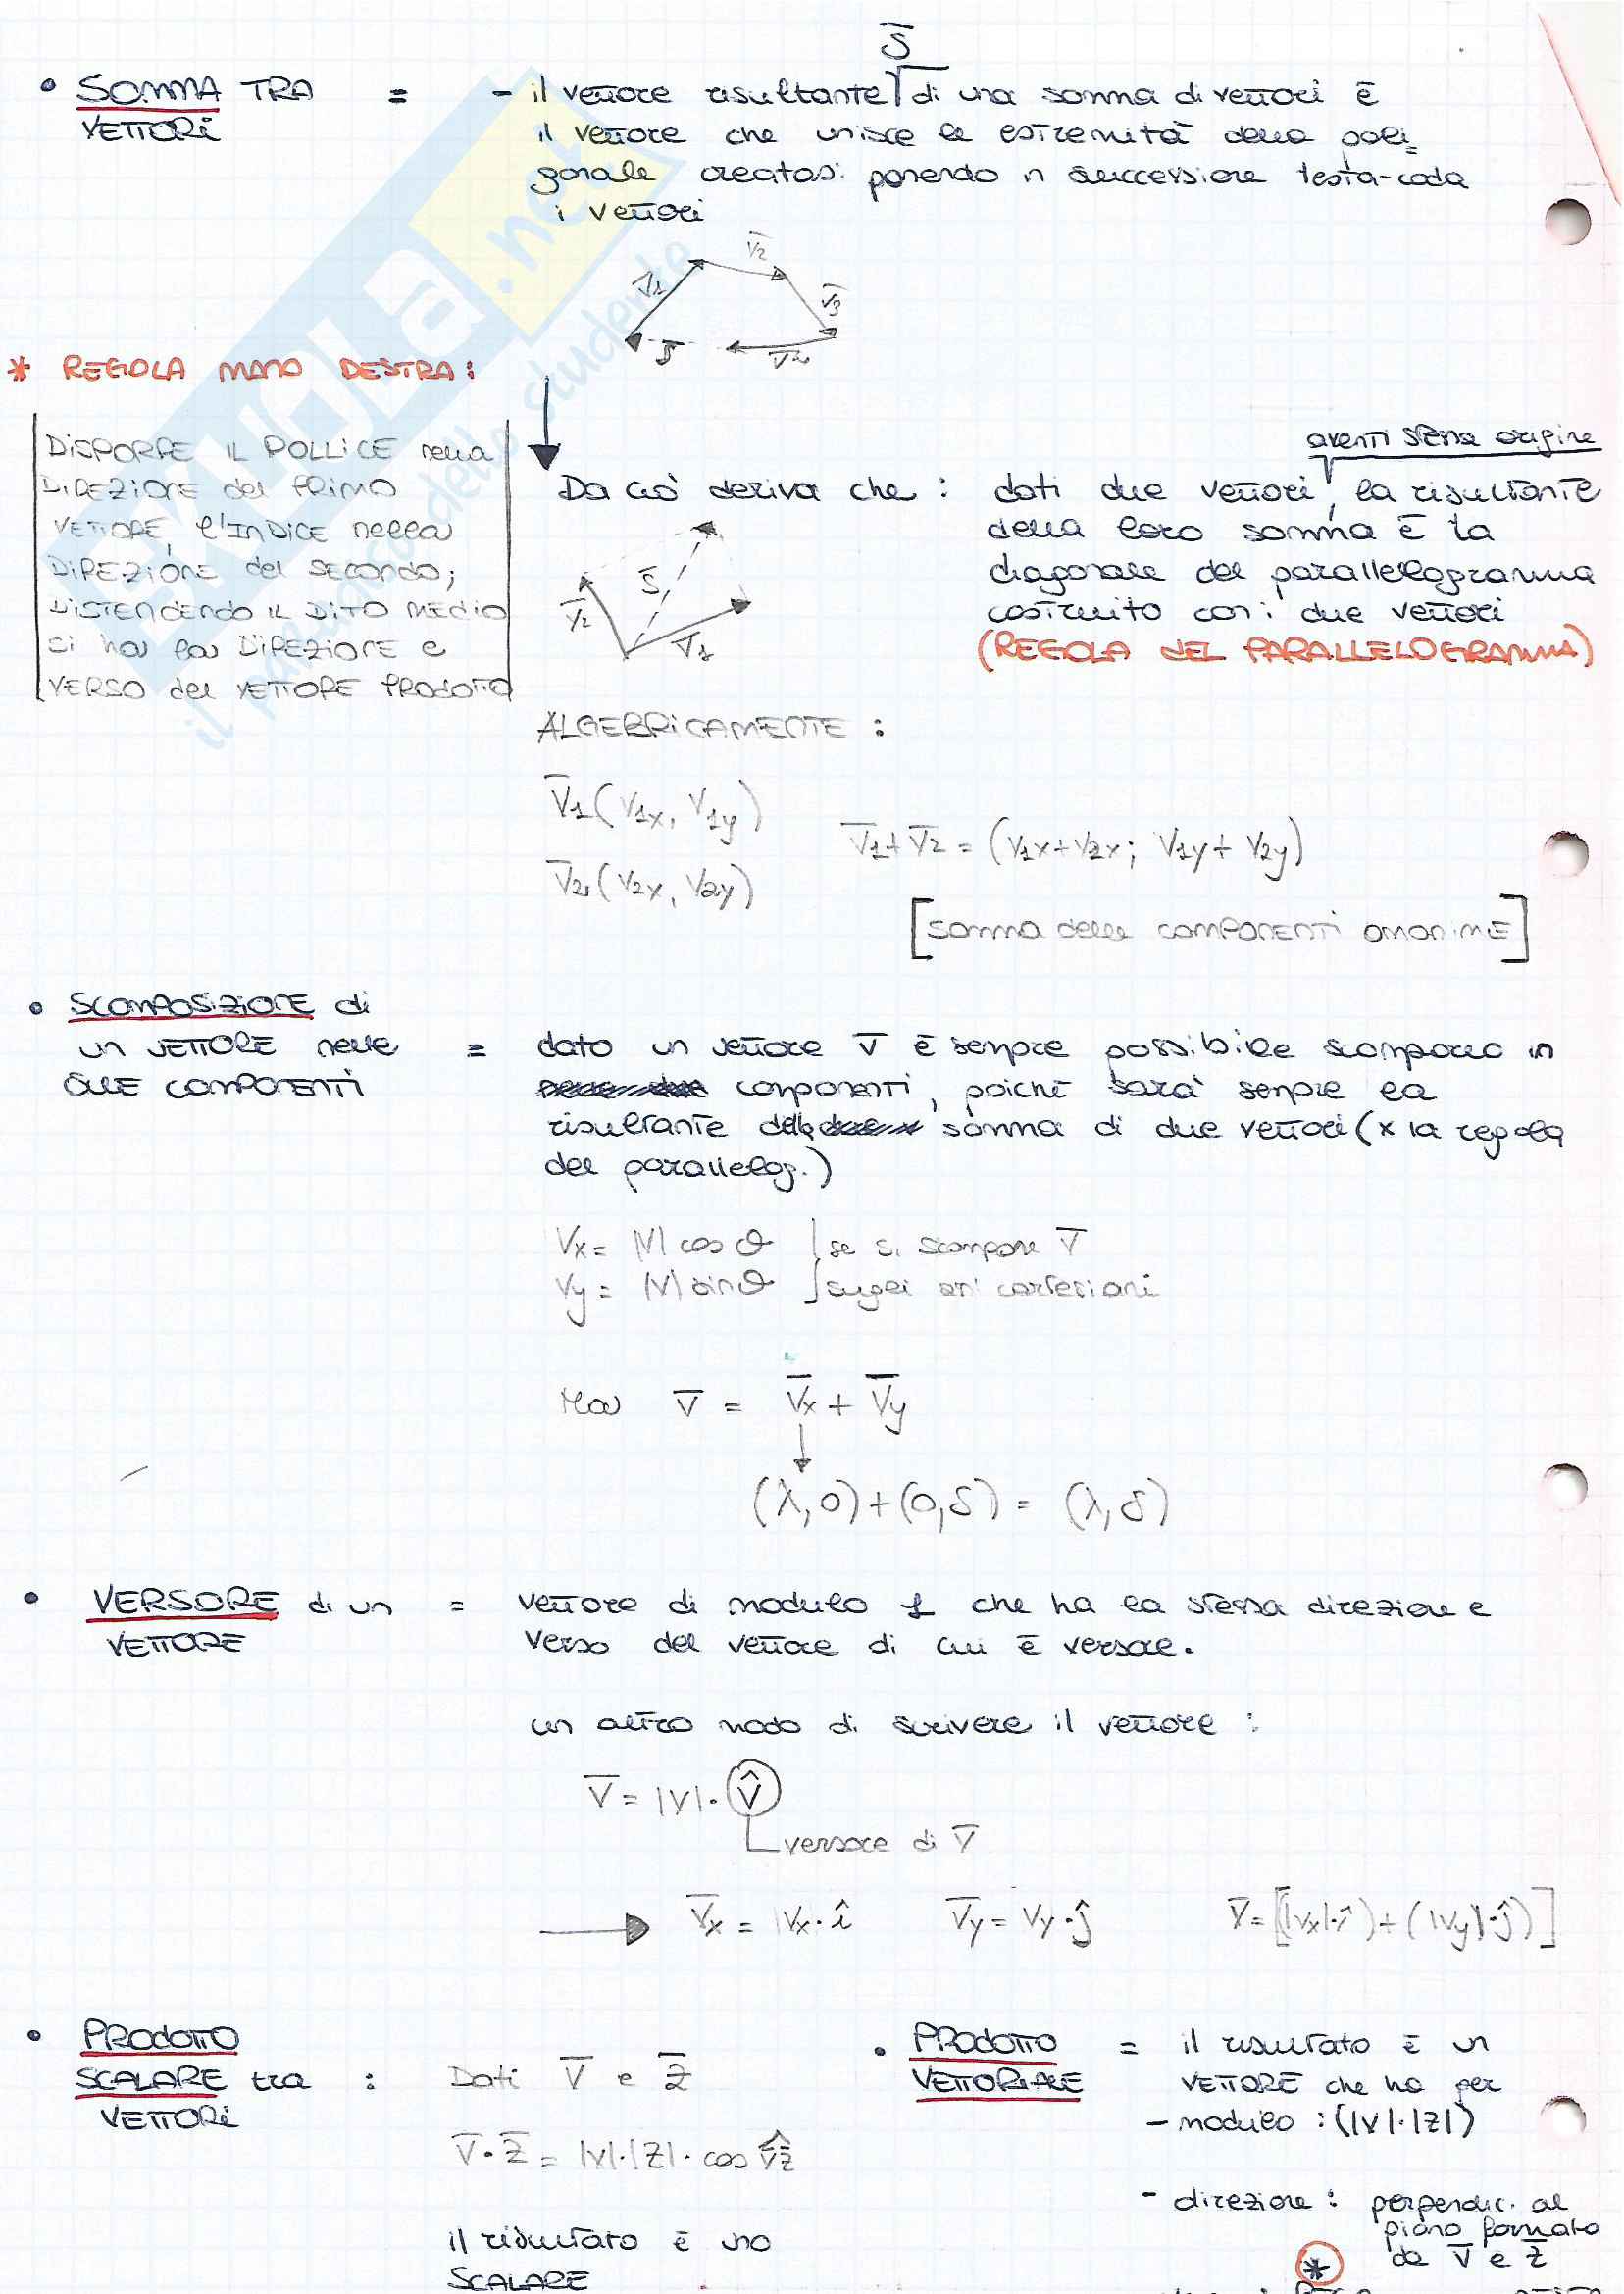 S̅
• SOMMA TRA = - il vettore risultante di una somma di vettori è
VETTORi il vettore che unisce le estremità della poli=
gonale creatasi ponendo in successione testa-coda
i vettori
V̅1 V̅2 V̅3 V̅4 S̅
* REGOLA MANO DESTRA:
DISPORRE IL POLLICE nella
DIREZIONE del PRIMO
VETTORE, l'INDICE nella
DIREZIONE del SECONDO;
DISTENDENDO IL DITO MEDIO
si ha la DIREZIONE e
VERSO del VETTORE PRODOTTO
aventi stessa origine
Da ciò deriva che: dati due vettori, la risultante
della loro somma è la
diagonale del parallelogramma
costruito con i due vettori
(REGOLA DEL PARALLELOGRAMMA)
V̅2 S̅ V̅1
ALGEBRICAMENTE:
V̅1(V1x, V1y)
V̅1+V̅2 = (V1x+V2x; V1y+V2y)
V̅2(V2x, V2y)
[somma delle COMPONENTI OMONIME]
• SCOMPOSIZIONE di
un VETTORE nelle = dato un vettore V̅ è sempre possibile scomporlo in
SUE COMPONENTI componenti, poichè sarà sempre la
risultante della somma di due vettori (x la regola
del parallelog.)
Vx = |V| cos θ se si scompone V̅
Vy = |V| sin θ sugli assi cartesiani
Ma V̅ = V̅x + V̅y
(λ,0)+(0,δ) = (λ,δ)
• VERSORE di un = vettore di modulo 1 che ha la stessa direzione e
VETTORE verso del vettore di cui è versore.
un altro modo di scrivere il vettore:
V̅ = |V|·V̂
versore di V̅
V̅x = |Vx·î V̅y = Vy·ĵ V̅ = [(|Vx|·î)+(|Vy|·ĵ)]
• PRODOTTO
SCALARE tra : Dati V̅ e Z̅
VETTORi
V̅·Z̅ = |V|·|Z|·cos V̅Z̅
il risultato è uno
SCALARE
• PRODOTTO = il risultato è un
VETTORIALE VETTORE che ha per
- modulo: (|V|·|Z|)
- direzione: perpendic. al
piano formato
da V̅ e Z̅
*
SKUOLA.net
il paradiso dello studente